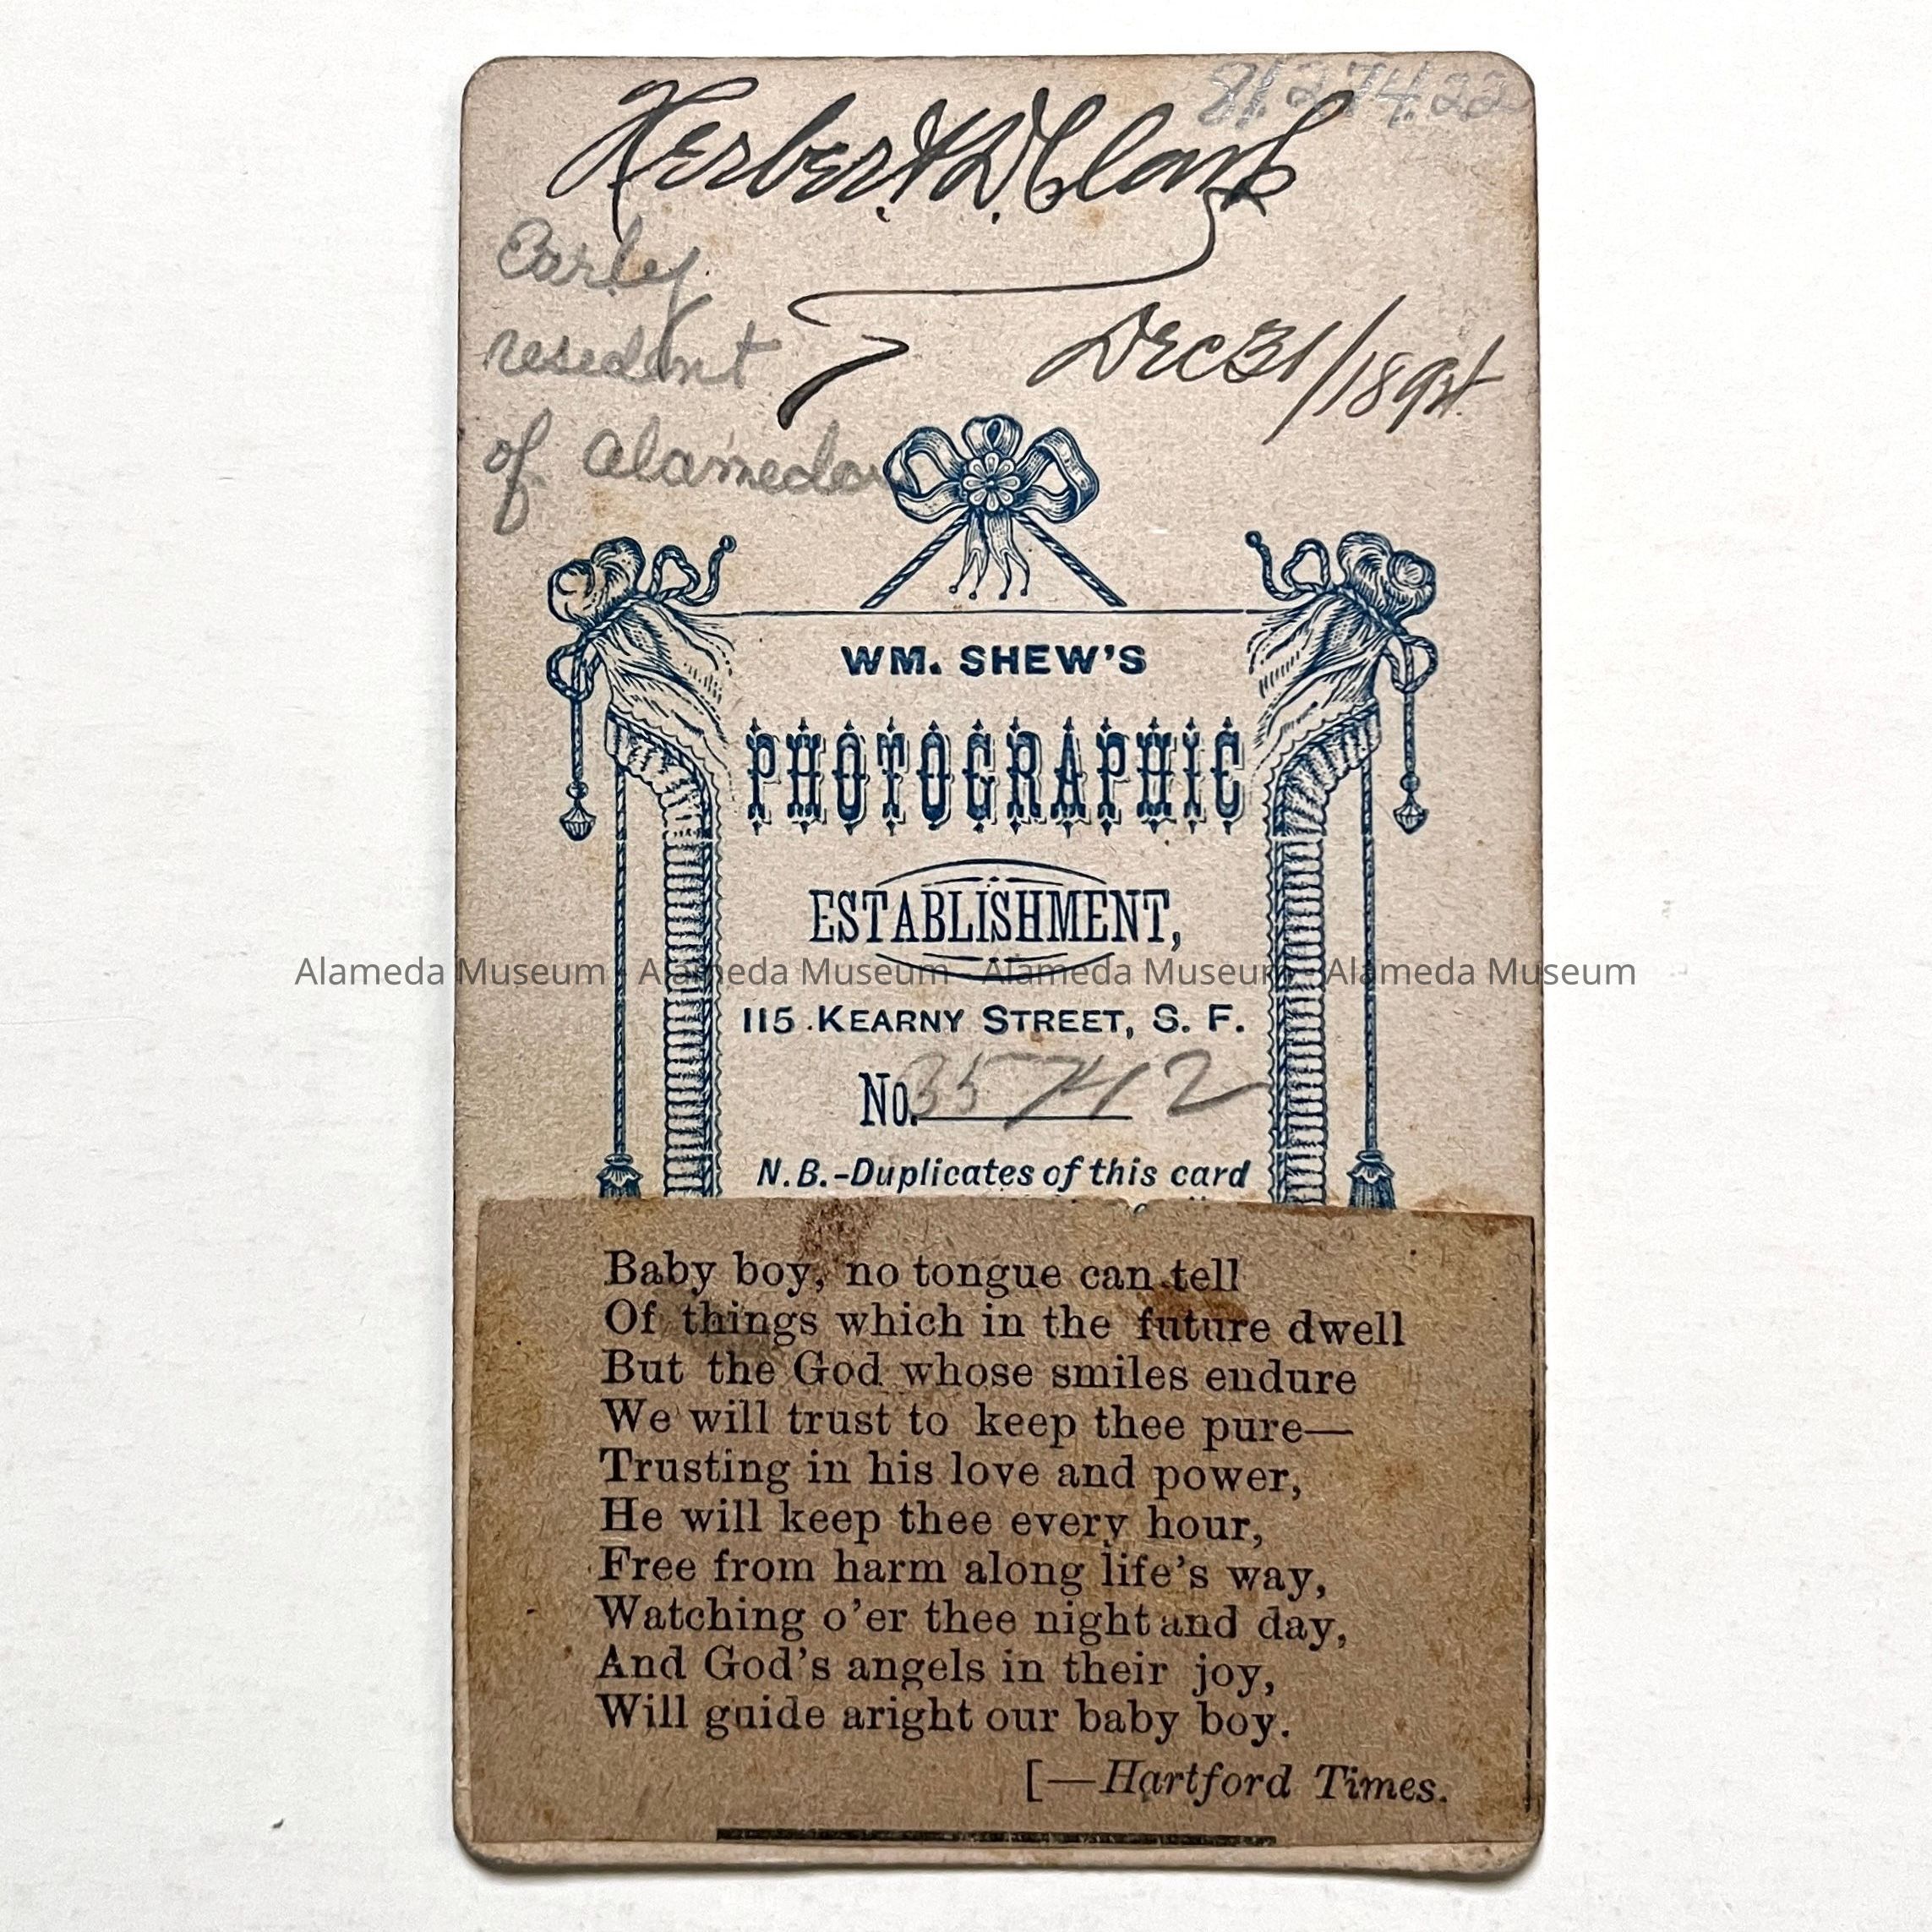 81.274.22
Herbert. D. Clark
Early
resedent
of Alameda
Dec 31/1894
WM. SHEW'S
PHOTOGRAPHIC
ESTABLISHMENT,
115 KEARNY STREET, S. F.
No. 35742
N.B.-Duplicates of this card
Baby boy, no tongue can tell
Of things which in the future dwell
But the God whose smiles endure
We will trust to keep thee pure—
Trusting in his love and power,
He will keep thee every hour,
Free from harm along life's way,
Watching o'er thee night and day,
And God's angels in their joy,
Will guide aright our baby boy.
[—Hartford Times.
Alameda Museum Alameda Museum Alameda Museum Alameda Museum